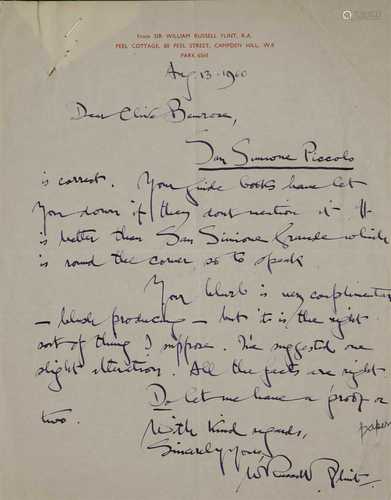 From SIR WILLIAM RUSSELL FLINT, R.A.
PEEL COTTAGE, 80 PEEL STREET, CAMPDEN HILL, W.8
PARK 6569
Aug 13 - 1960
Dear Clive Bemrose,
San Simione Piccolo
is correct. Your guide books have let
you down if they dont mention it. It
is better than San Simione Grande which
is round the corner so to speak
Your blurb is very complimentary
— blush producing — but it is the right
sort of thing I suppose. I've suggested one
slight alteration. All the facts are right.
Do let me have a proof or
two.
papers
With kind regards,
Sincerely Yours,
W Russell Flint.